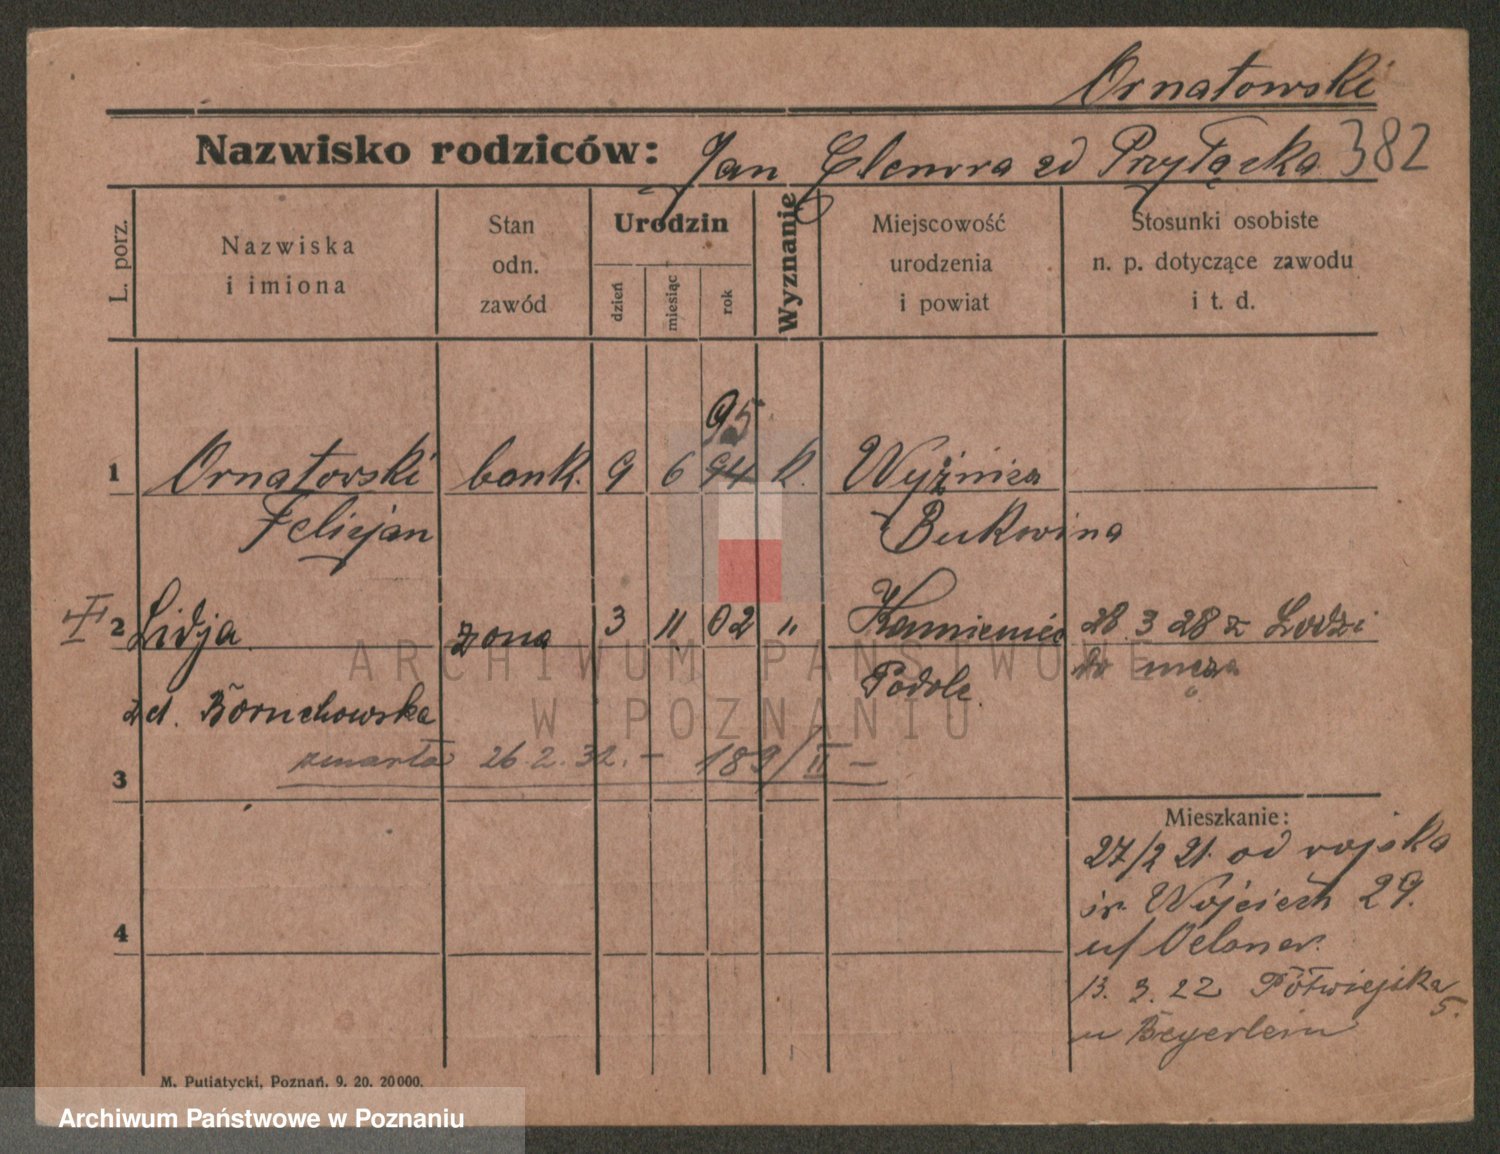 Ornatowski
Nazwisko rodziców: Jan Eleonora zd Przyłęcka 382
L. porz.
Nazwiska
i imiona
Stan
odn.
zawód
Urodzin
dzień
miesiąc
rok
Wyznanie
Miejscowość
urodzenia
i powiat
Stosunki osobiste
n. p. dotyczące zawodu
i t. d.
95
1 Ornatowski bank. 9 6 94 k. Wyżnica
Felicjan Bukowina
2 Lidja żona 3 11 02 " Kamieniec 28. 3 28 z Łodzi
Podole do męża
zd. Boruchowska
zmarła 26.2.32. – 189/II –
3
Mieszkanie:
27/2 21. od wojska
św. Wojciech 29.
4
13. 3. 22 Półwiejska 5.
u Beyerlein
M. Putiatycki, Poznań. 9. 20. 20000.
ARCHIWUM PAŃSTWOWE
W POZNANIU
Archiwum Państwowe w Poznaniu